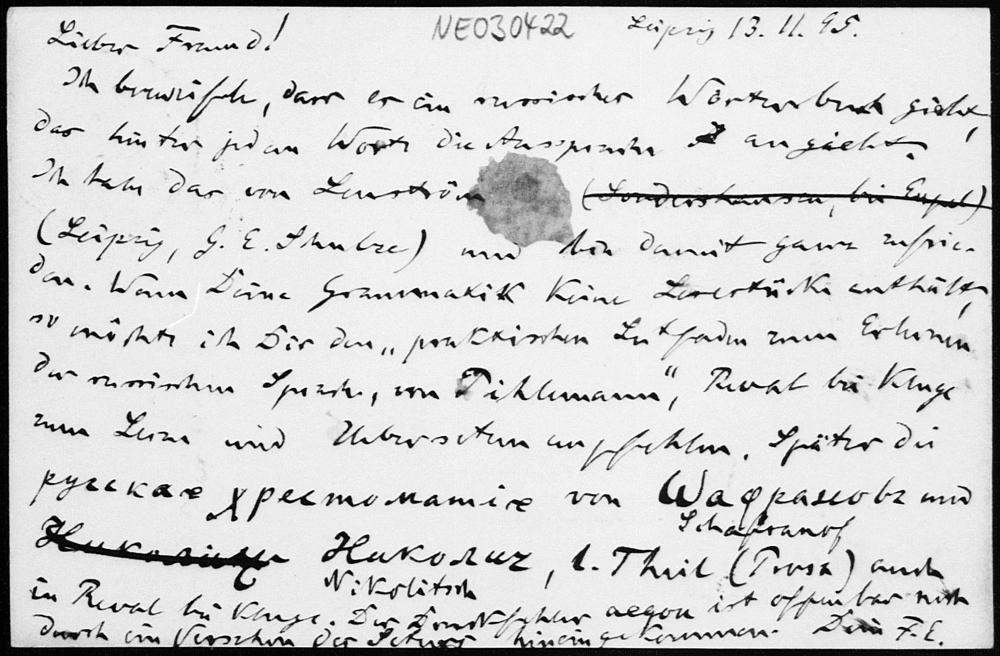 NEO30422
Leipzig 13.11.95.
Lieber Freund!
Ich bezweifele, dass es ein russisches Wörterbuch giebt,
das hinter jedem Worte die Aussprache angiebt.
Ich habe das von Lenström (Sondershausen, bei Eupel)
(Leipzig, G. E. Schulze) und bin damit ganz zufrie-
den. Wenn Deine Grammatik keine Lesestücke enthält,
so möchte ich Dir den „praktischen Leitfaden zum Erlernen
der russischen Sprache, von Pihlemann“, Reval bei Kluge
zum Lesen und Uebersetzen empfehlen. Später die
русская христоматія von Шафрановъ und
Schafranof
Николичъ, 1. Theil (Prosa) auch
Nikolitsch
in Reval bei Kluge. Der Druckfehler aegou ist offenbar noch
durch ein Versehen des Setzers hineingekommen. Dein F. E.